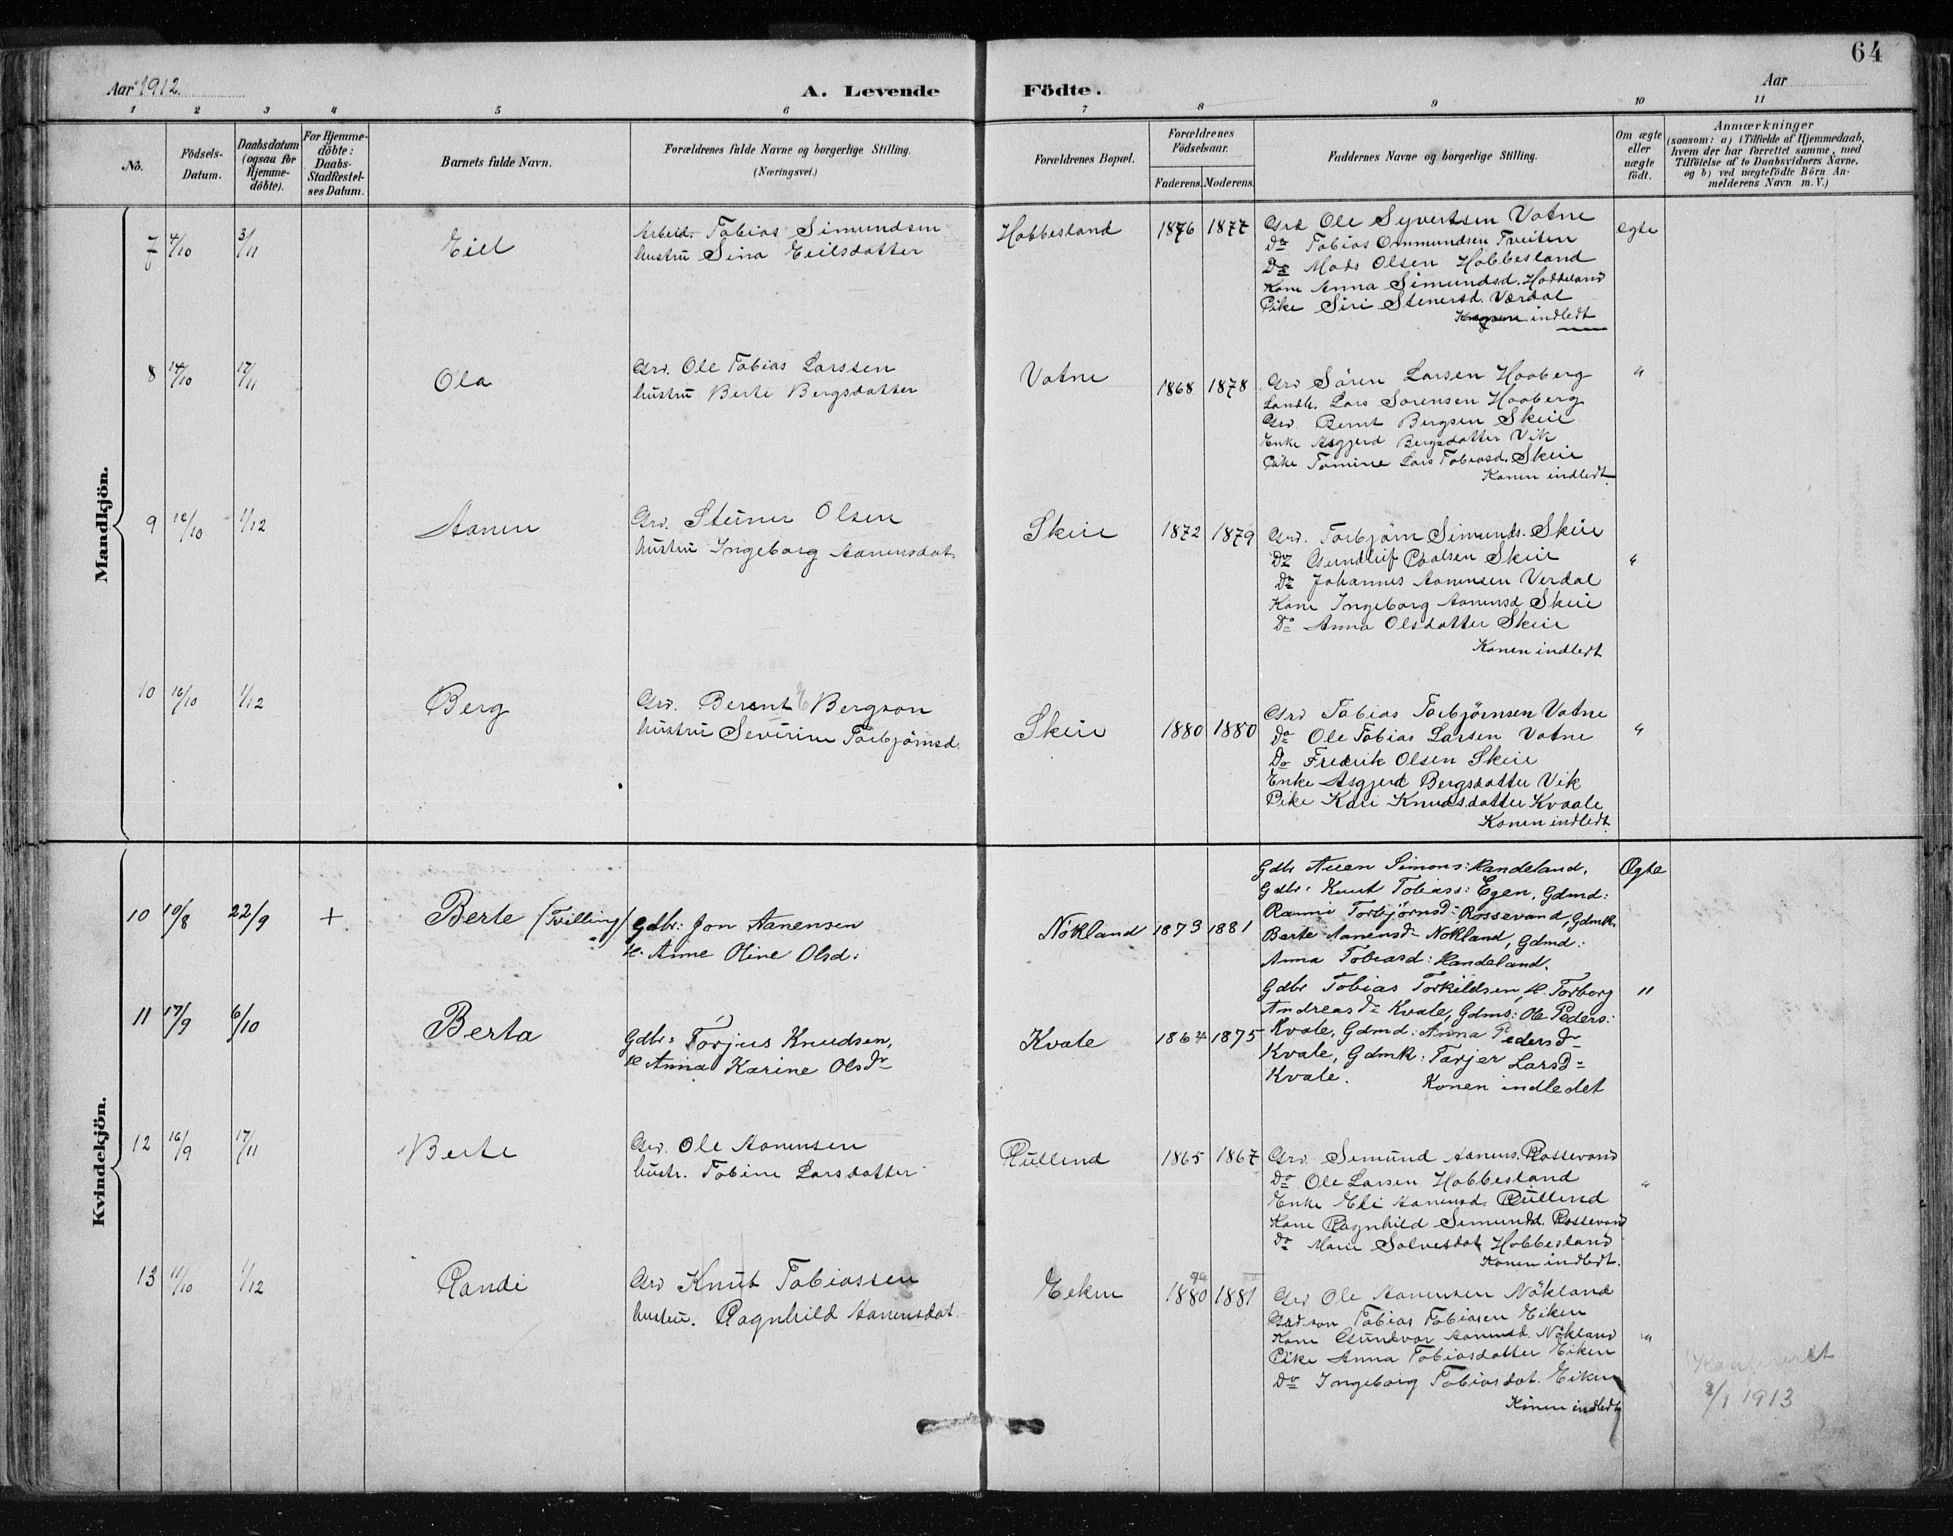 64
Aar 1912.
A. Levende Födte.
Aar
1 2 3 4 5 6 7 8 9 10 11
No.
Födsels-Datum.
Daabsdatum (ogsaa for Hjemmedöbte).
For Hjemmedöbte: Daabs-Stadfæstelses Datum.
Barnets fulde Navn.
Forældrenes fulde Navne og borgerlige Stilling.
(Næringsvei.)
Forældrenes Bopæl.
Forældrenes Födselsaar.
Faderens. Moderens.
Faddernes Navne og borgerlige Stilling.
Om ægte eller uægte födt.
Anmærkninger
(saasom: a) i Tilfælde af Hjemmedaab, hvem der har forrettet samme, med Tilföielse af to Daabsvidners Navne, og b) ved uægtefödte Börn Anmelderens Navn m. V.)
Mandkjön.
7 4/10 3/11 Eiel
Arbeid. Tobias Simundsen
hustru Sina Eielsdatter
Hobbesland 1876 1877
Grd Ole Syvertsen Votne
Do Tobias Ommundsen Tveiten
Do Mads Olsen Hobbesland
Kone Anna Simundsd. Hoddeland
Pike Siri Stenersd. Værdal
Konen indledt
egte
8 14/10 17/11 Ola
Grd. Ole Tobias Larssen
hustru Berte Bergsdatter
Votne 1868 1878
Grd Sören Larsen Haaberg
Landh. Lars Sorensen Haaberg
Grd Bernt Bergsen Skeie
Enke Asgjerd Bergsdatter Vik
Pike Tomine Lars Tobiasd. Skeie
Konen indledt.
"
9 10/10 1/12 Aanen
Grd. Steiner Olsen
hustru Ingeborg Aanensdat.
Skeie 1872 1879
Grd. Torbjörn Simunds. Skeie
Do Gundleif Paalsen Skeie
Do Johannes Aanensen Verdal
Kone Ingeborg Aanensd Skeie
Do Anna Olsdatter Skeie
Konen indledt
"
10 16/10 1/12 Berg
Grd. Bernt E Bergson
hustru Severine Torbjörnsd.
Skeie 1880 1880
Grd Tobias Torbjörnsen Votne
Do Ole Tobias Larsen Votne
Do Fredrik Olsen Skeie
Enke Asgjerd Bergsdatter Vik
Pike Kari Knudsdatter Kvaale
Konen indledt.
"
Kvindekjön.
10 10/8 22/9 + Berte (Tvilling)
Gdbr: Jon Aanensen
H. Anne Oline Olsd:
Nökland 1873 1881
Gdbr Auen Simons: Handeland,
Gdbr: Knut Tobiass: Egen, Gdmd:
Rannie Torbjørnsd: Rossevand, Gdmk.
Berte Aanensd- Nokland, Gdmd:
Anna Tobiasd: Handeland.
Øgte
11 17/9 6/10 Berta
Gdbr: Torjus Knudsen,
H Anna Karine Olsdr
Kvale 1864 1875
Gdbr Tobias Torkildsen, H. Torborg
Andreasd- Kvale, Gdms: Ole Peders:
Kvale, Gdmd: Anna Pedersdr
Kvale, Gdmk: Tarjer Larsd-
Kvale. Konen indledet
"
12 16/9 17/11 Berte
Grd. Ole Aanensen
hustr. Tobine Larsdatter
Rullend 1865 1867
Grd. Semund Aanens. Rossevand
Do Ole Larsen Hobbesland
Enke Eli Aanensd. Rullend
Kone Ragnhild Semundsd. Rossevand
Do Marie Solvesdat Hobbesland
Konen indledt.
"
13 11/10 1/12 Randi
Grd Knut Tobiassen
hustru. Ragnhild Aanensdat.
Eiken 1880 1881
Grd Ole Aanensen Nökland
Grdson Tobias Tobiasen Eiken
Kone Gundvor Aanensd. Nökland
Pike Anna Tobiasdatter Eiken
Do Ingeborg Tobiasdat. Eiken
Konen indledt
"
1913